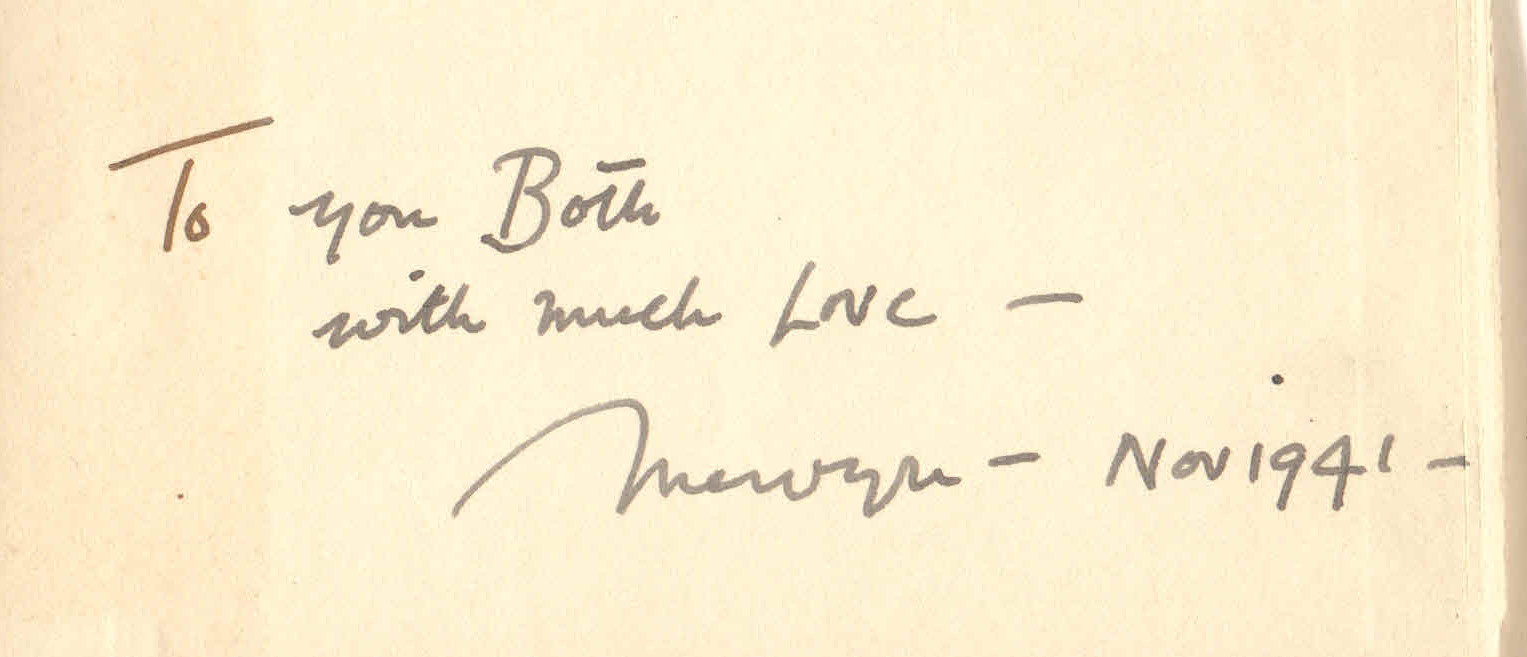 To you Both
with much Love —
Mervyn — Nov 1941 —